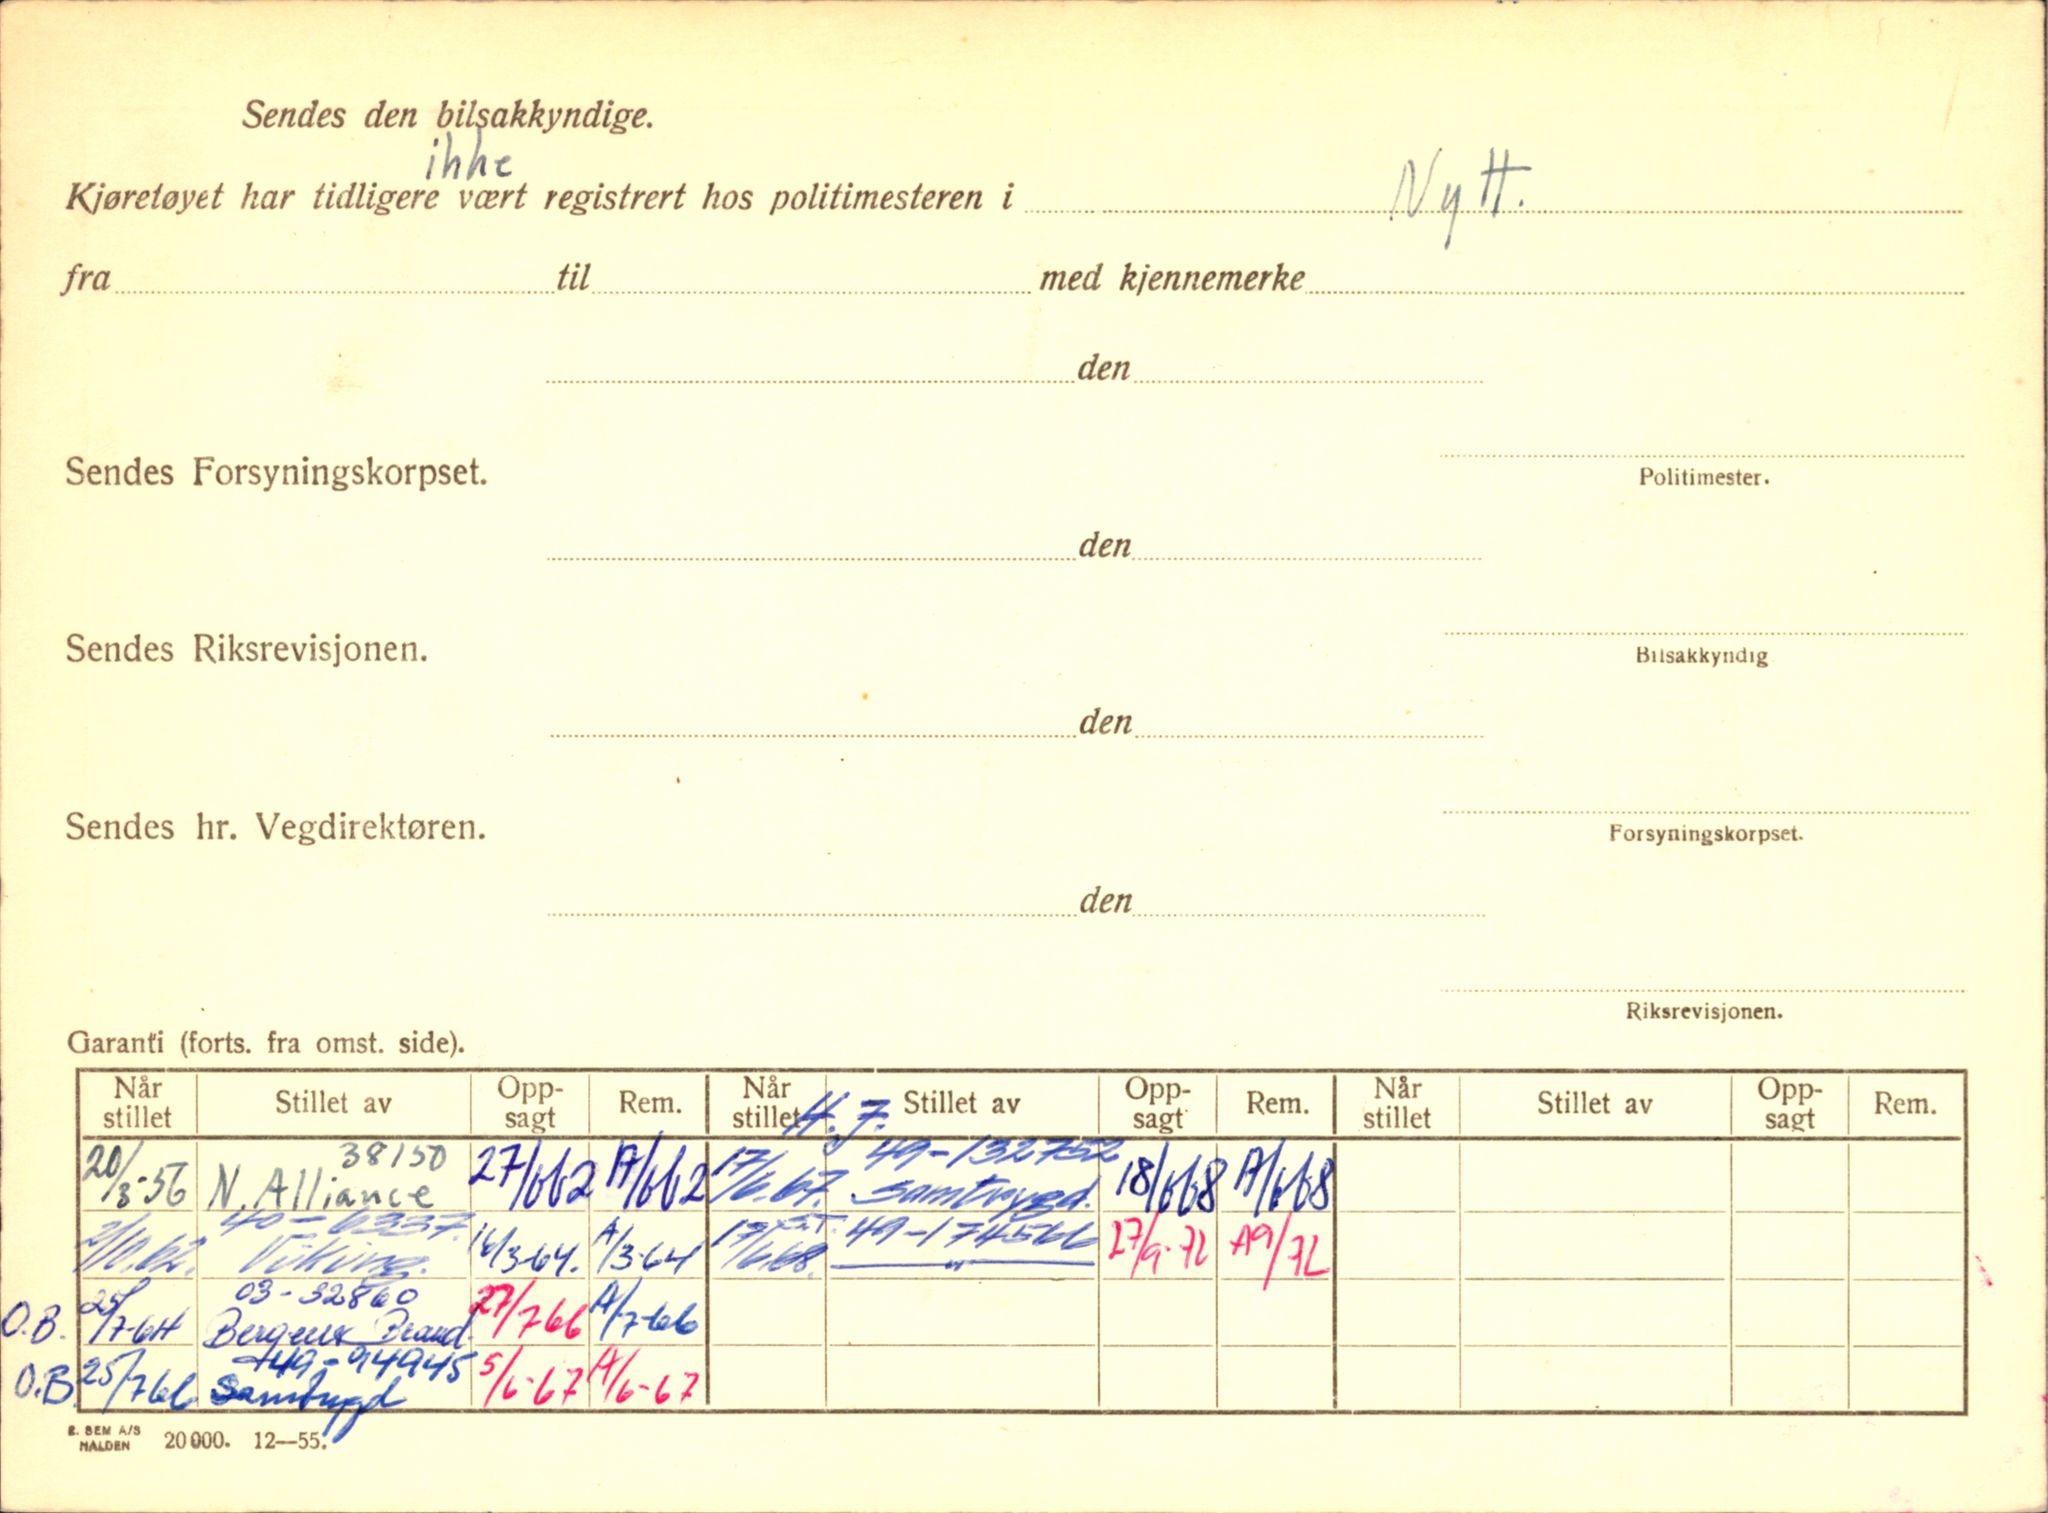 Sendes den bilsakkyndige.
ikke
Kjøretøyet har tidligere vært registrert hos politimesteren i Nytt.
fra til med kjennemerke
den
Sendes Forsyningskorpset.
Politimester.
den
Sendes Riksrevisjonen.
Bilsakkyndig
den
Sendes hr. Vegdirektøren.
Forsyningskorpset.
den
Riksrevisjonen.
Garanti (forts. fra omst. side).
Når stillet Stillet av Opp-sagt Rem. Når stillet Stillet av Opp-sagt Rem. Når stillet Stillet av Opp-sagt Rem.
38150 49-132752
20/3-56 N. Alliance 27/662 A/662 17/6.67. Samtrygd. 18/668 A/668
40-6337.
Viking. 16/3-64. A/3-64 17/6.68. 49-174566 27/9-72 A9/72
03-32860
O.B. 25/7-64 Bergens Brand. 27/766 A/7-66
49-94945
O.B. 25/766 Samtrygd 5/6-67 A/6-67
E. SEM A/S
HALDEN 20 000. 12—55.